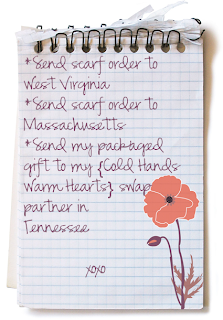 *Send scarf order to
West Virginia
*Send scarf order to
Massachusetts
*Send my packaged
gift to my {Cold Hands
Warm Hearts} swap
partner in
Tennessee
xoxo